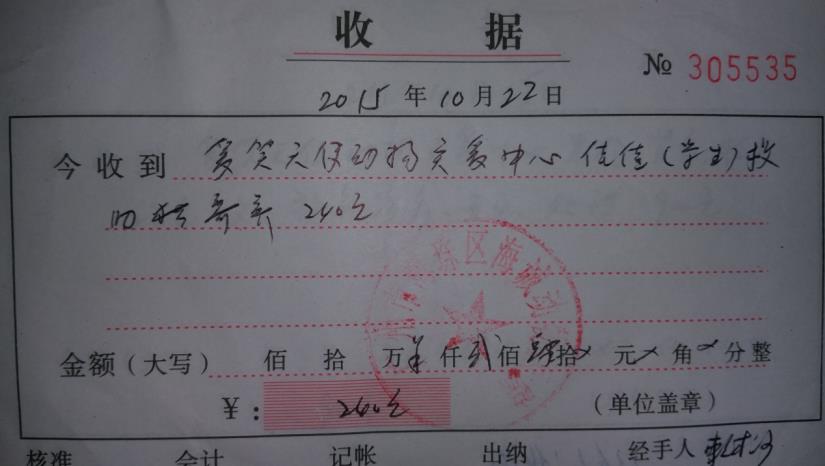 收 据
№ 305535
2015 年 10 月 22 日
今 收 到 爱笑天使动物关爱中心 佳佳(学生)投
助 寄养 240元
区海城
金额(大写) 佰 拾 万 仟 贰 佰 肆 拾 元 角 分 整
¥: 240元 (单位盖章)
核准 会计 记帐 出纳 经手人